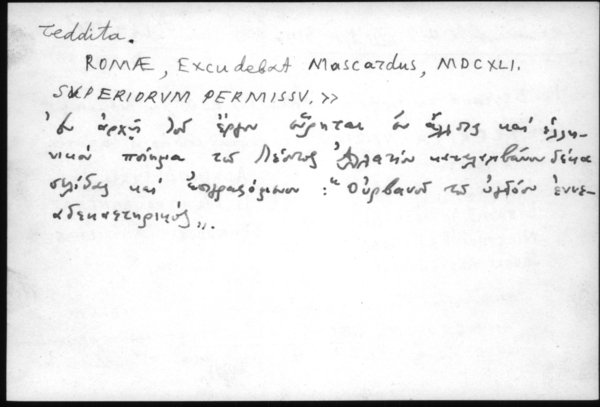 reddita.
ROMÆ, Excudebat Mascardus, MDCXLI.
SUPERIORVM PERMISSV.»
Ἐν ἀρχῇ τοῦ ἔργου εὕρηται ἓν καὶ ἑλλη-
νικὸν ποίημα τοῦ Λέοντος Ἀλλατίου καταλαμβάνον δέκα
σελίδας καὶ ἐπιγραφόμενον : "Οὐρβανοῦ τοῦ ὀγδόου ἐννε-
αδεκαετηρικός„.